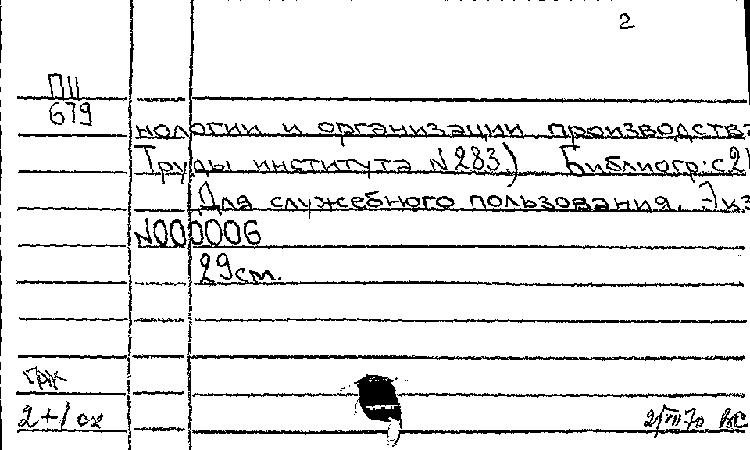 2
ПII
679
нологии и организации производства
Труды института N283) Библиогр: с2
Для служебного пользования. Экз
N000006
29см.
2+1 ох